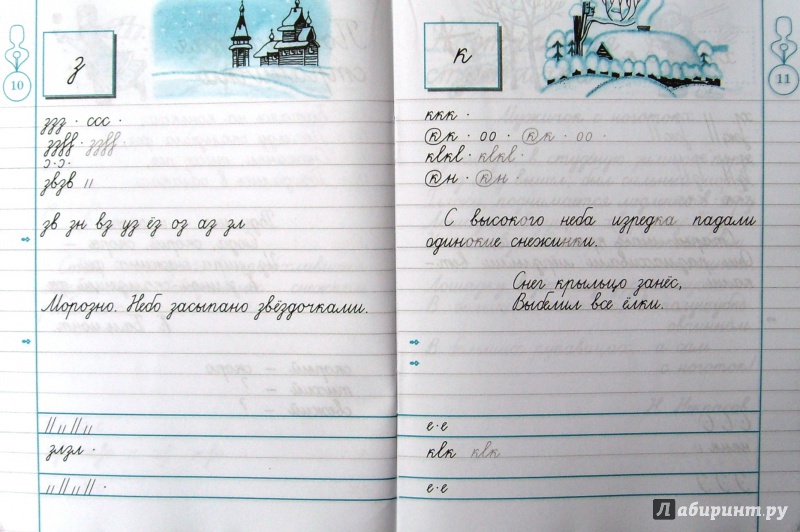 10
з
ззз · ссс ·
звзв ıı
зв зн вз уз ёз оз аз зл
Морозно. Небо засыпано звёздочками.
злзл ·
11
к
ккк ·
к к · оо · к к · оо ·
квкв · квкв ·
к н · к н ·
С высокого неба изредка падали
одинокие снежинки.
Снег крыльцо занёс,
Выбелил все ёлки.
е·е
квк квк
е·е
Лабиринт.ру